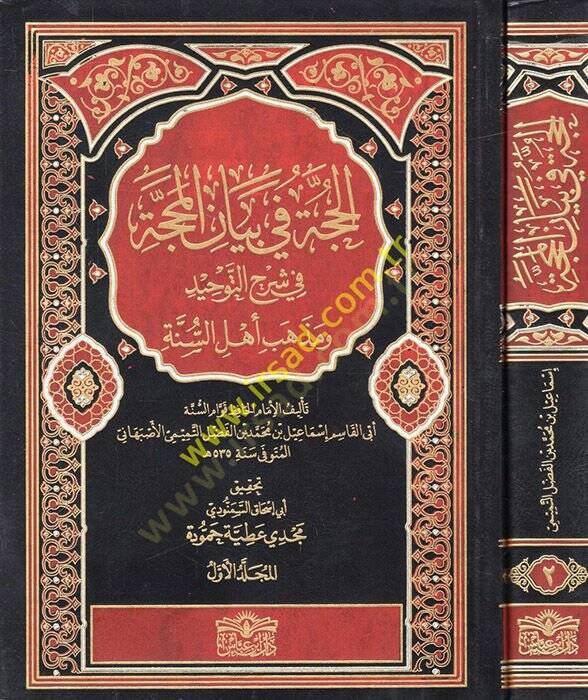 الحجة في بيان المحجة
في شرح التوحيد
ومذهب أهل السنة
تأليف الإمام الحافظ قوام السنة
أبي القاسم إسماعيل بن محمد بن الفضل التميمي الأصبهاني
المتوفى سنة ٥٣٥هـ
تحقيق
أبي إسحاق السمنودي
مجدي عطية حمودة
المجلد الأول
دار ابن عباس
الحجة في بيان المحجة
إسماعيل بن محمد بن الفضل التميمي
٢
دار ابن عباس
www.irsad.com.tr